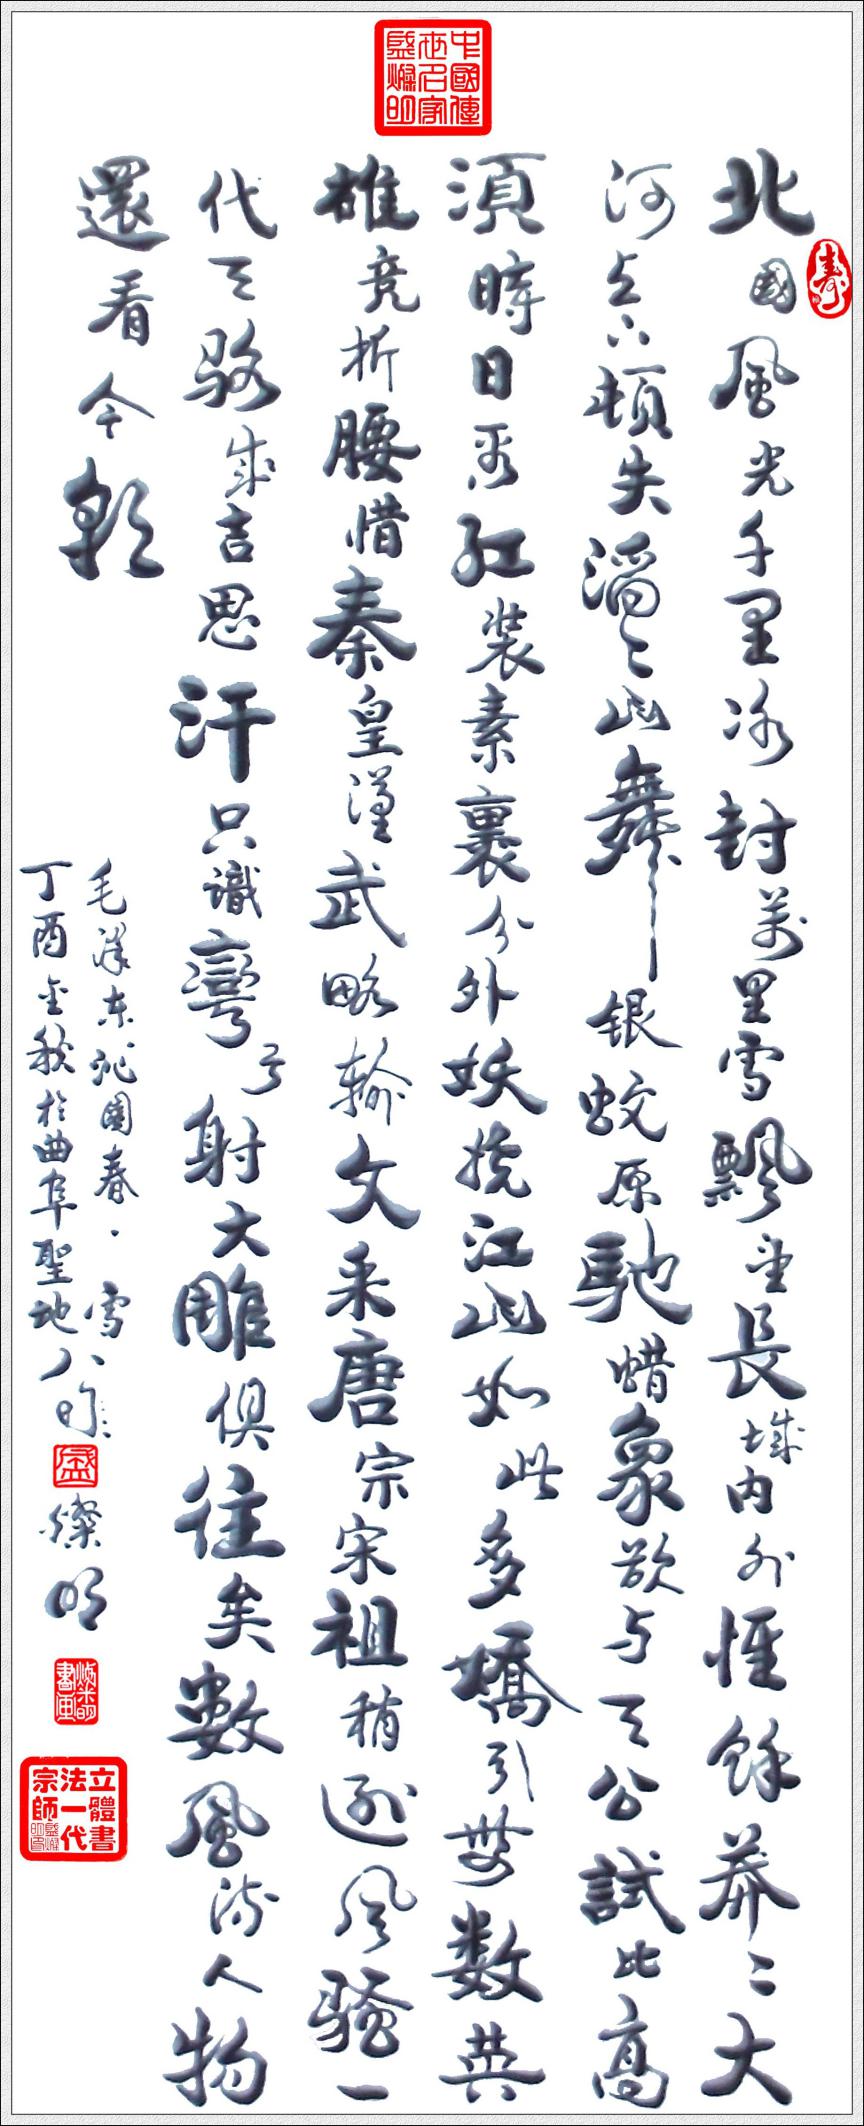 中國傳世名家盛燦明
壽
北國風光千里冰封萬里雪飄望長城内外惟餘莽〻大
河上下頓失滔〻山舞银蛇原馳蜡象欲与天公試比高
須晴日看红装素裹分外妖娆江山如此多嬌引無数英
雄竞折腰惜秦皇漢武略输文采唐宗宋祖稍逊风骚一
代天骄成吉思汗只識彎弓射大雕俱往矣數風流人物
還看今朝
毛澤東沁園春·雪
丁酉金秋於曲阜聖地八
盛
燦明
立體書法一代宗師